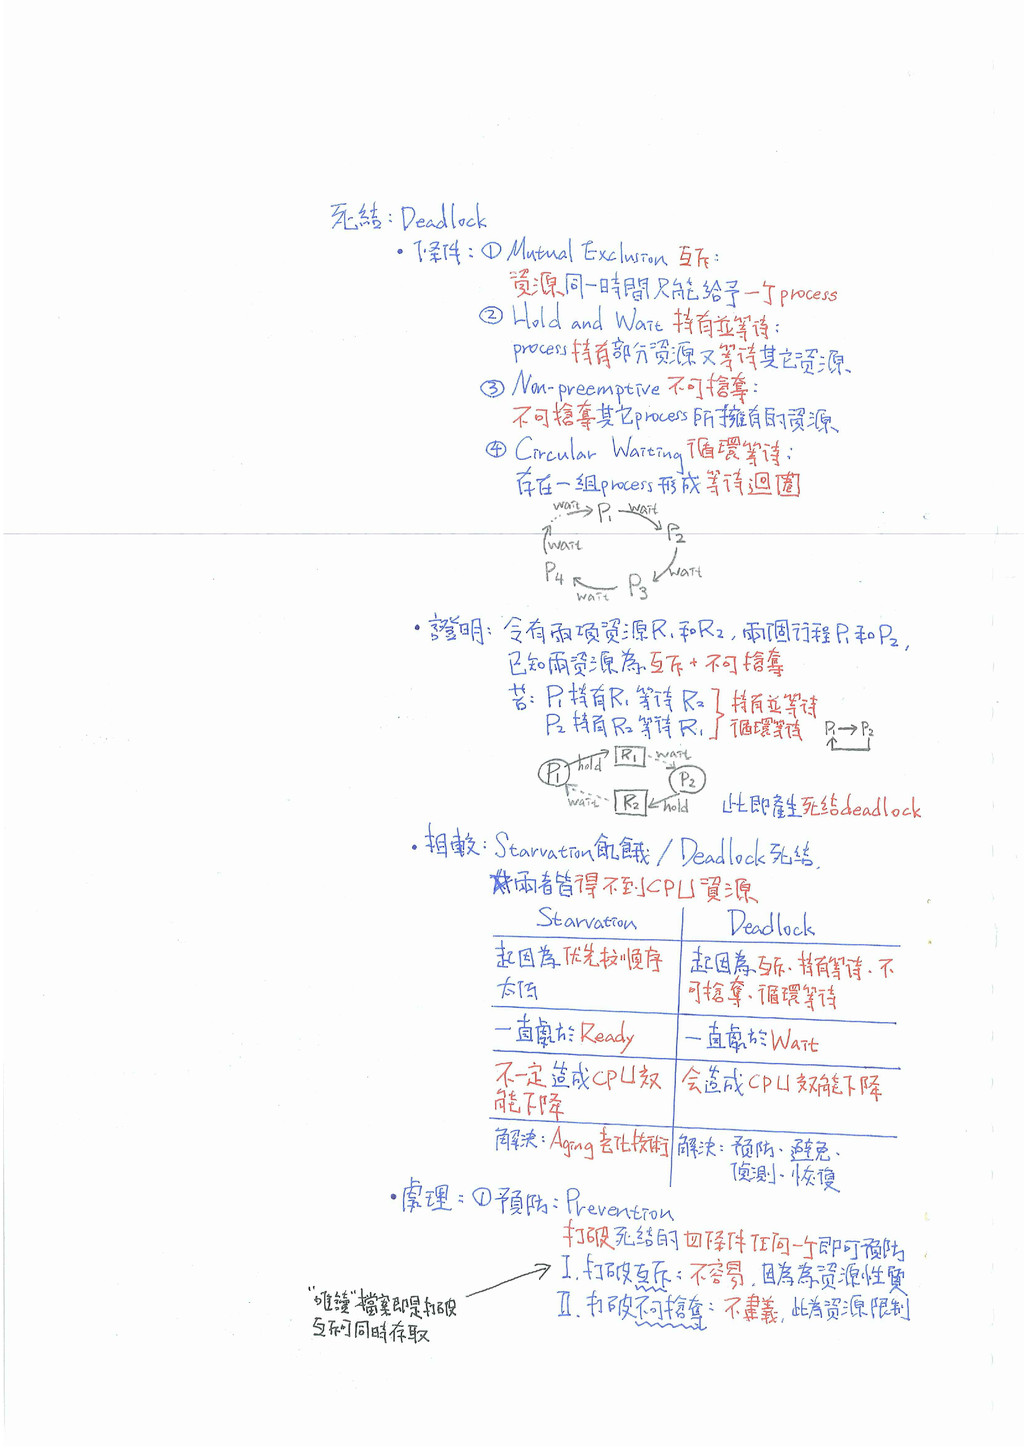 死結: Deadlock
• 條件: ① Mutual Exclusion 互斥:
資源同一時間只能給予一个process
② Hold and Wait 持有並等待:
process持有部分資源又等待其它資源、
③ Non-preemptive 不可搶奪:
不可搶奪其它process所擁有的資源、
④ Circular Waiting 循環等待:
存在一組process形成等待迴圈
wait P1 wait
P2
wait
P4 wait
P3
wait
• 證明: 令有兩項資源R1和R2, 兩個行程P1和P2,
已知兩資源為互斥+不可搶奪
若: P1持有R1等待R2 } 持有並等待
P2持有R2等待R1 } 循環等待 P1→P2
P1 hold R1 wait P2
wait R2 hold
此即產生死結deadlock
• 相較: Starvation飢餓 / Deadlock死結,
兩者皆得不到CPU資源
Starvation Deadlock
起因為优先权順序太低
起因為互斥、持有等待、不可搶奪、循環等待
一直處於Ready 一直處於Wait
不一定造成CPU效能下降
会造成CPU效能下降
解決: Aging老化技術
解決: 預防、避免、
偵測、恢復
• 處理: ① 預防: Prevention
打破死結的四條件任何一个即可預防
I. 打破互斥: 不容易, 因為為資源性質
II. 打破不可搶奪: 不建議, 此為資源限制
"唯讀"檔案即是打破
互斥可同時存取